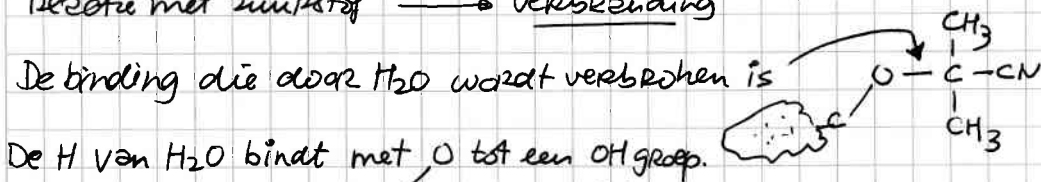 Reactie met zuurstof → verbranding
CH3
De binding die door H2O wordt verbroken is O — C — CN
C CH3
De H van H2O bindt met O tot een OH groep.